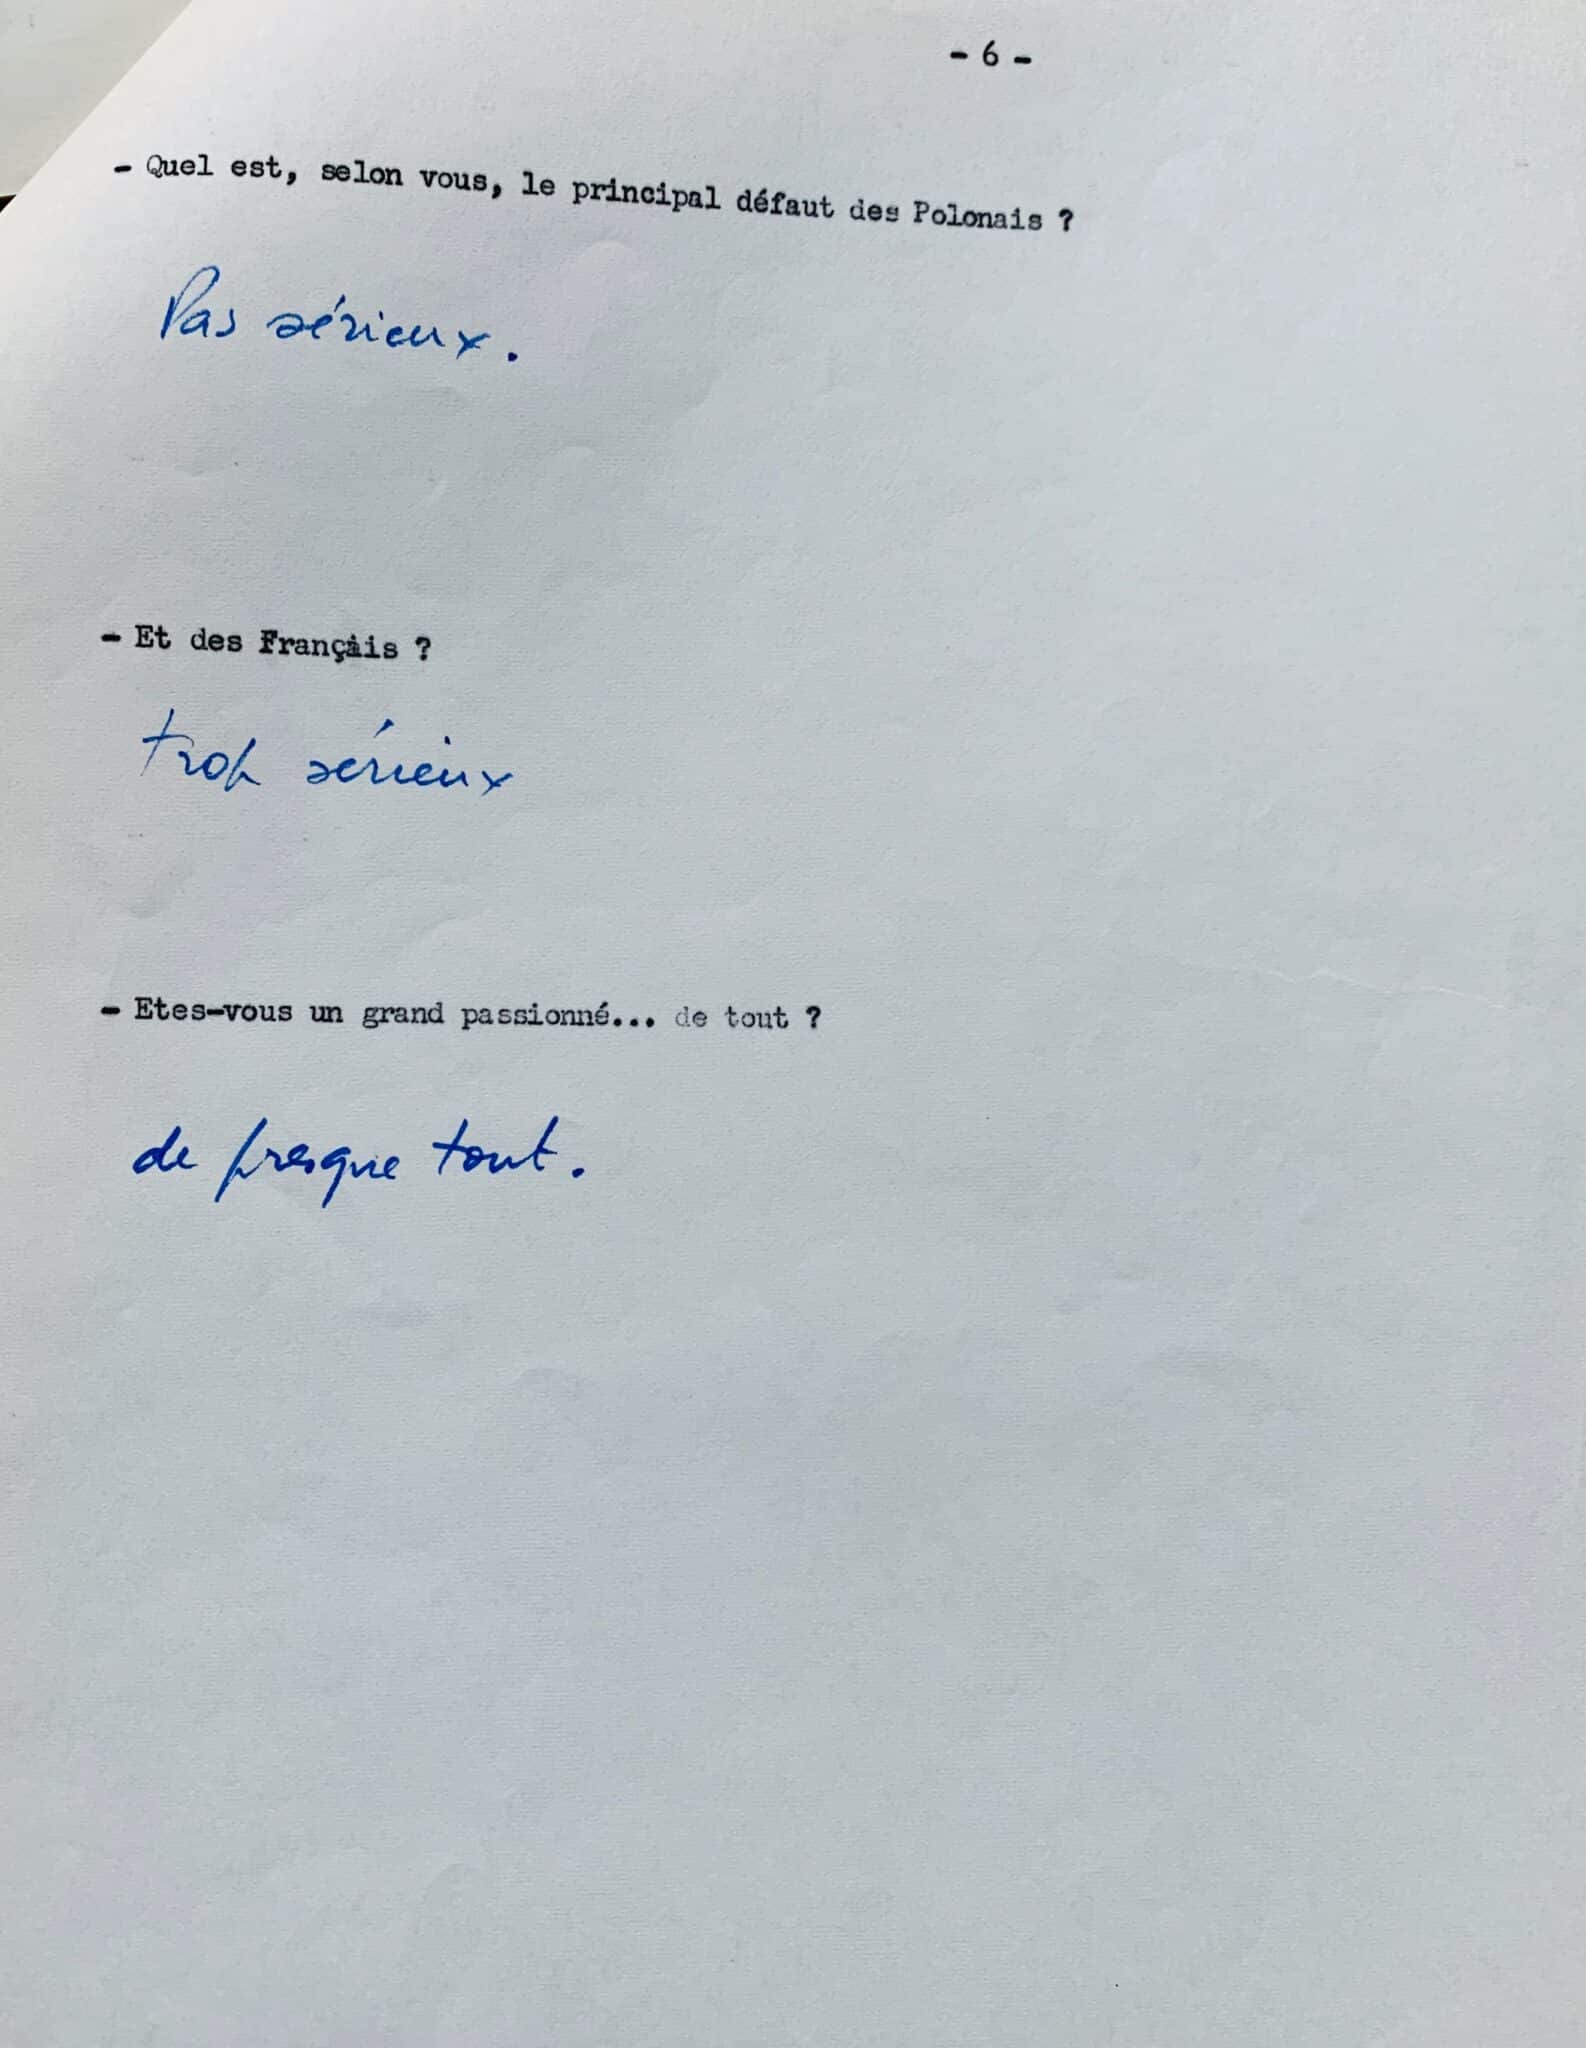 - 6 -
- Quel est, selon vous, le principal défaut des Polonais ?
Pas sérieux.
- Et des Français ?
trop sérieux
- Etes-vous un grand passionné... de tout ?
de presque tout.